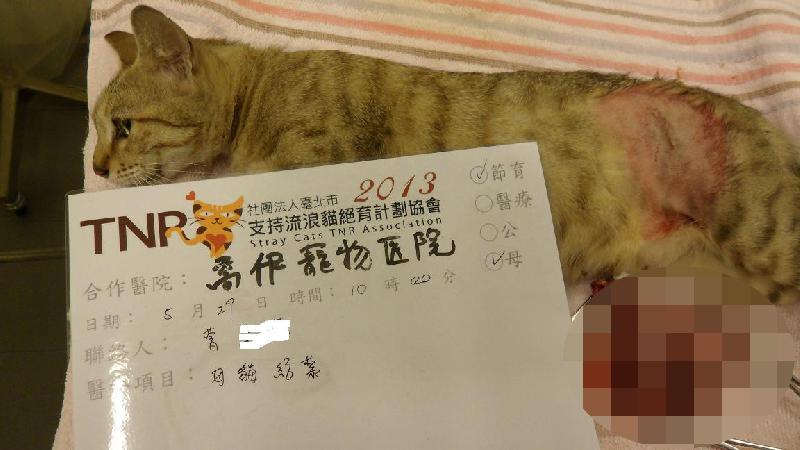 2013
TNR 社團法人臺北市
支持流浪貓絕育計劃協會
Stray Cats TNR Association
✓節育
醫療
公
✓母
合作醫院： 喬伊寵物医院
日期： 5 月 29 日 時間： 10 時 00 分
聯絡人：
醫 項目： 母貓結紮